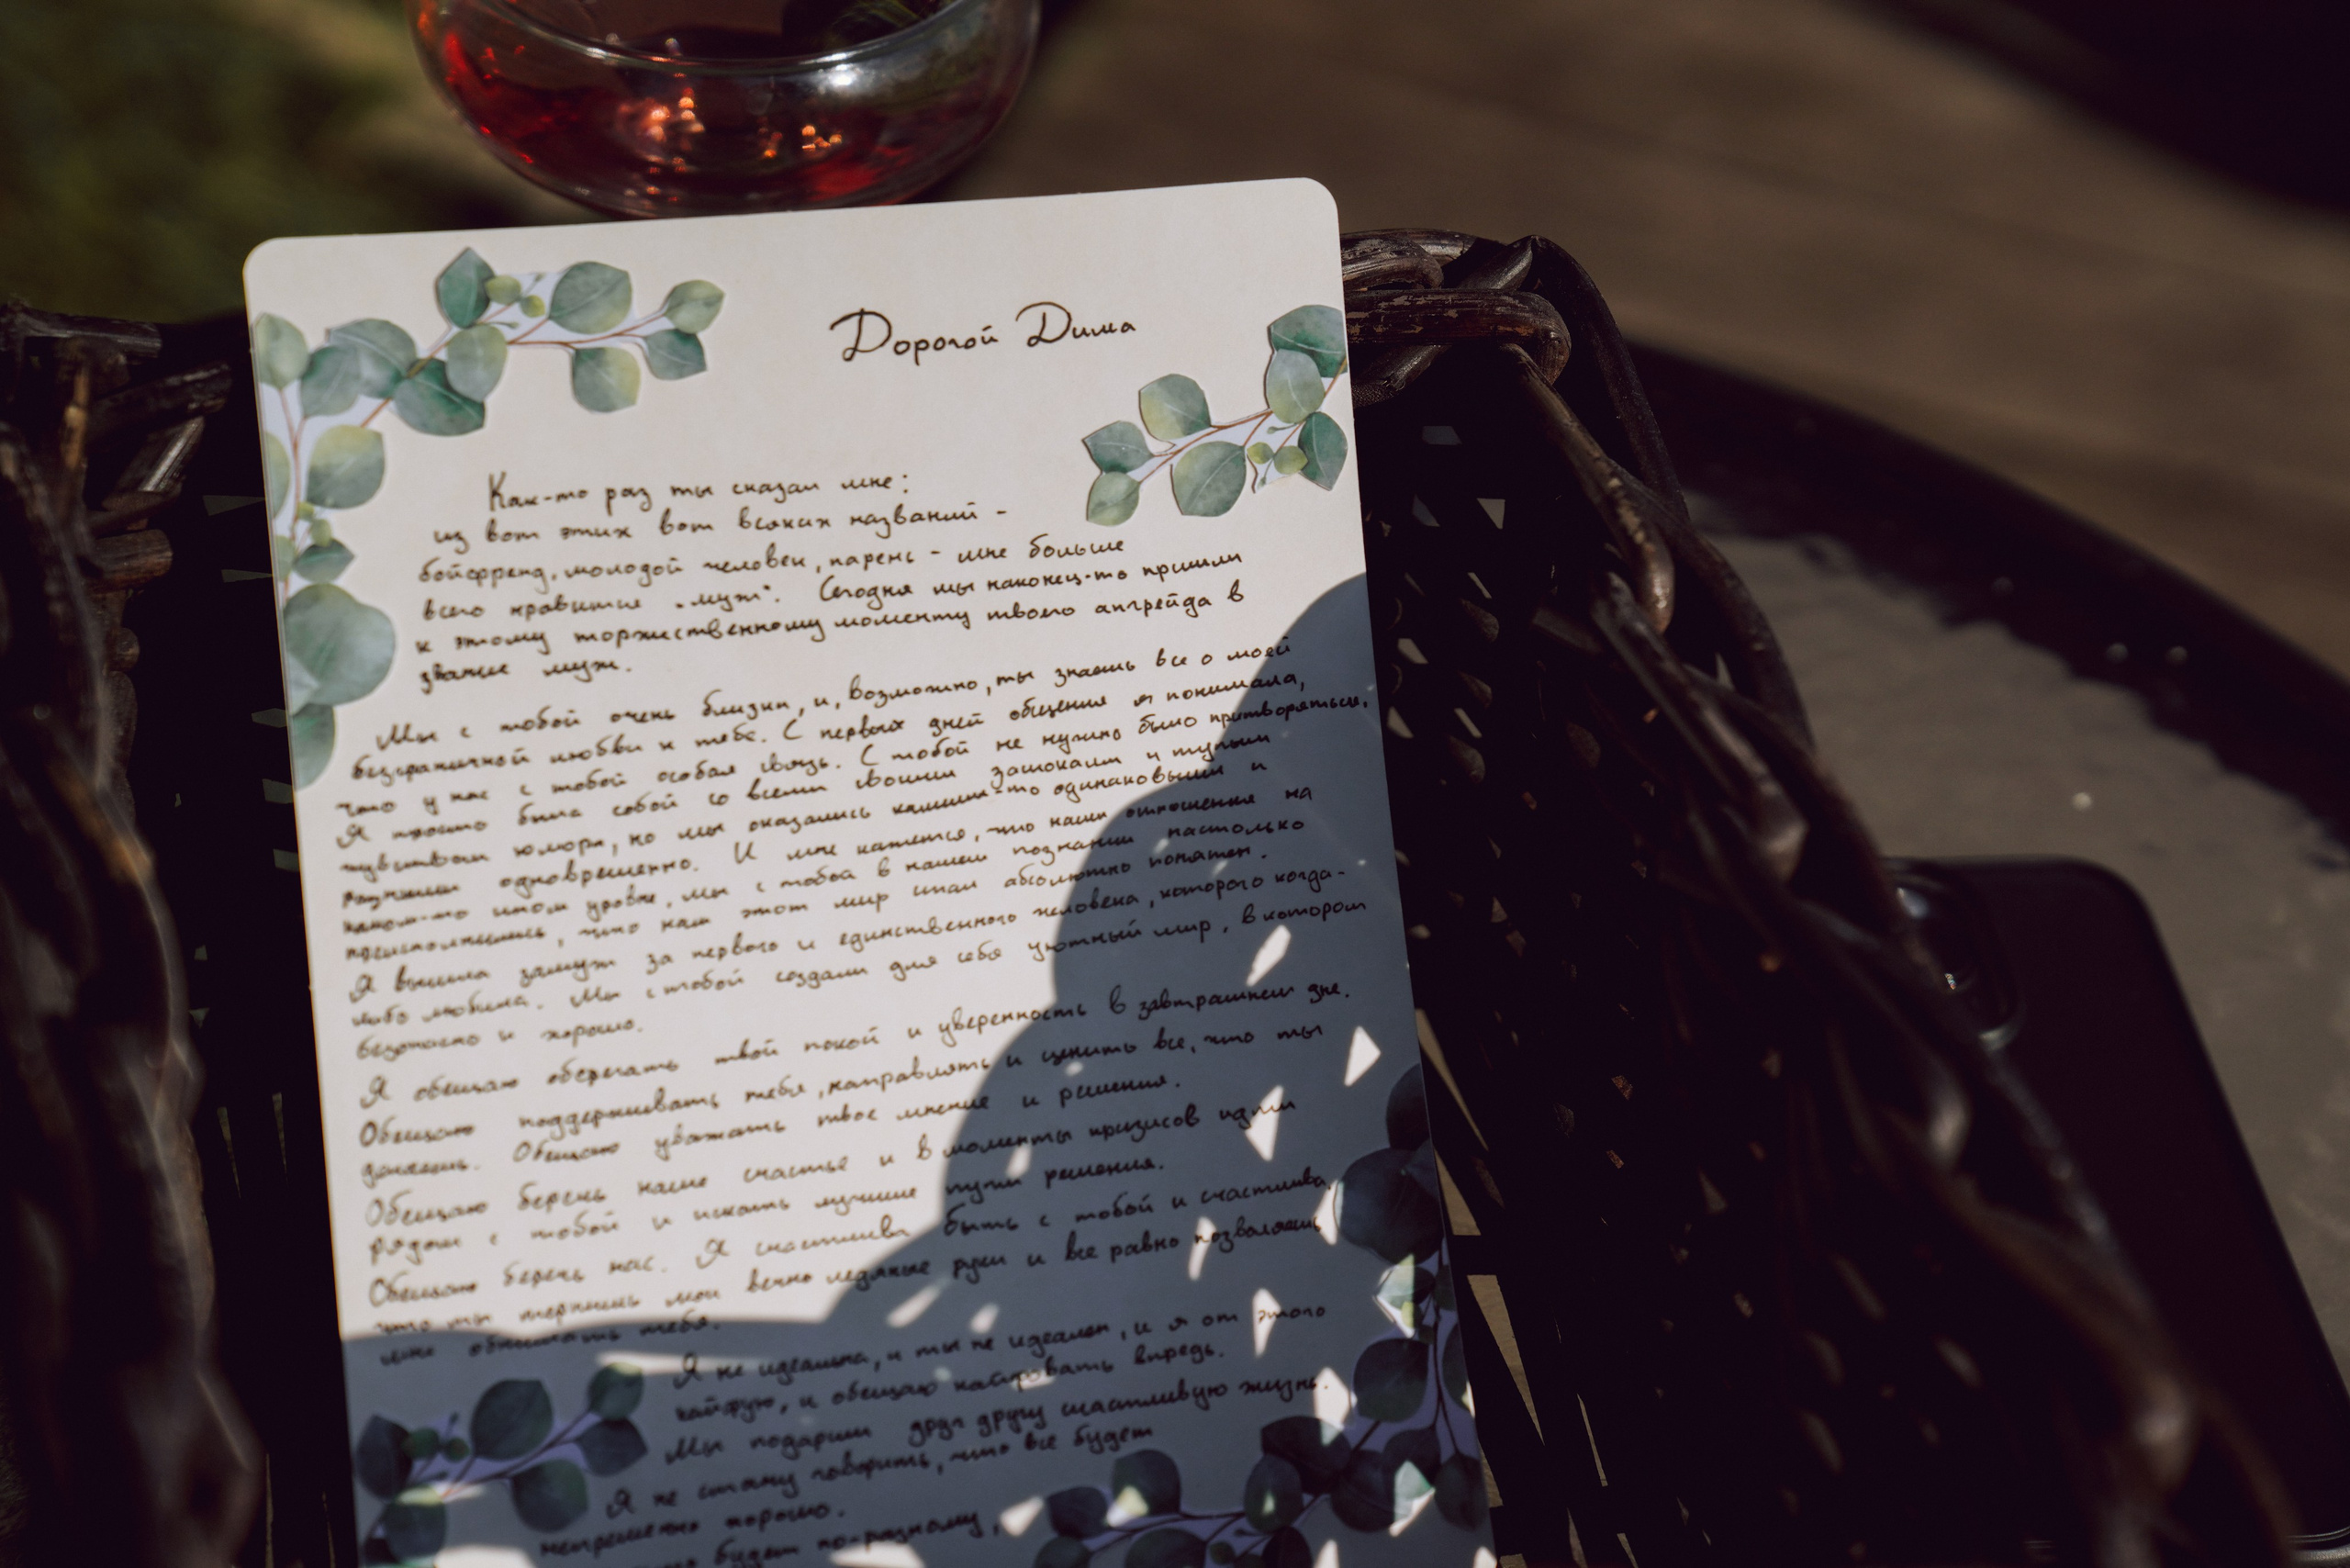 Дорогой Дима
Как-то раз ты сказал мне:
из вот этих вот всяких названий -
бойфренд, молодой человек, парень - мне больше
всего нравится „муж". Сегодня мы наконец-то пришли
к этому торжественному моменту твоего апгрейда в
звание муж.
Мы с тобой очень близки, и, возможно, ты знаешь все о моей
безграничной любви к тебе. С первых дней общения я понимала,
что у нас с тобой особая связь. С тобой не нужно было притворяться.
Я просто была собой со всеми своими загонами и тупым
чувством юмора, но мы оказались какими-то одинаковыми и
разными одновременно. И мне кажется, что наши отношения на
каком-то ином уровне, мы с тобой в нашем познании настолько
преисполнились, что нам этот мир стал абсолютно понятен.
Я вышла замуж за первого и единственного человека, которого когда-
либо любила. Мы с тобой создали для себя уютный мир, в котором
безопасно и хорошо.
Я обещаю оберегать твой покой и уверенность в завтрашнем дне.
Обещаю поддерживать тебя, направлять и ценить все, что ты
делаешь. Обещаю уважать твое мнение и решения.
Обещаю беречь наше счастье и в моменты кризисов идти
рядом с тобой и искать лучшие пути решения.
Обещаю беречь нас. Я счастлива быть с тобой и счастлива,
что ты терпишь мои вечно ледяные руки и все равно позволяешь
мне обнимать тебя.
Я не идеальна, и ты не идеален, и я от этого
кайфую, и обещаю кайфовать впредь.
Мы подарим друг другу счастливую жизнь.
Я не стану говорить, что все будет
непременно хорошо.
будет по-разному,